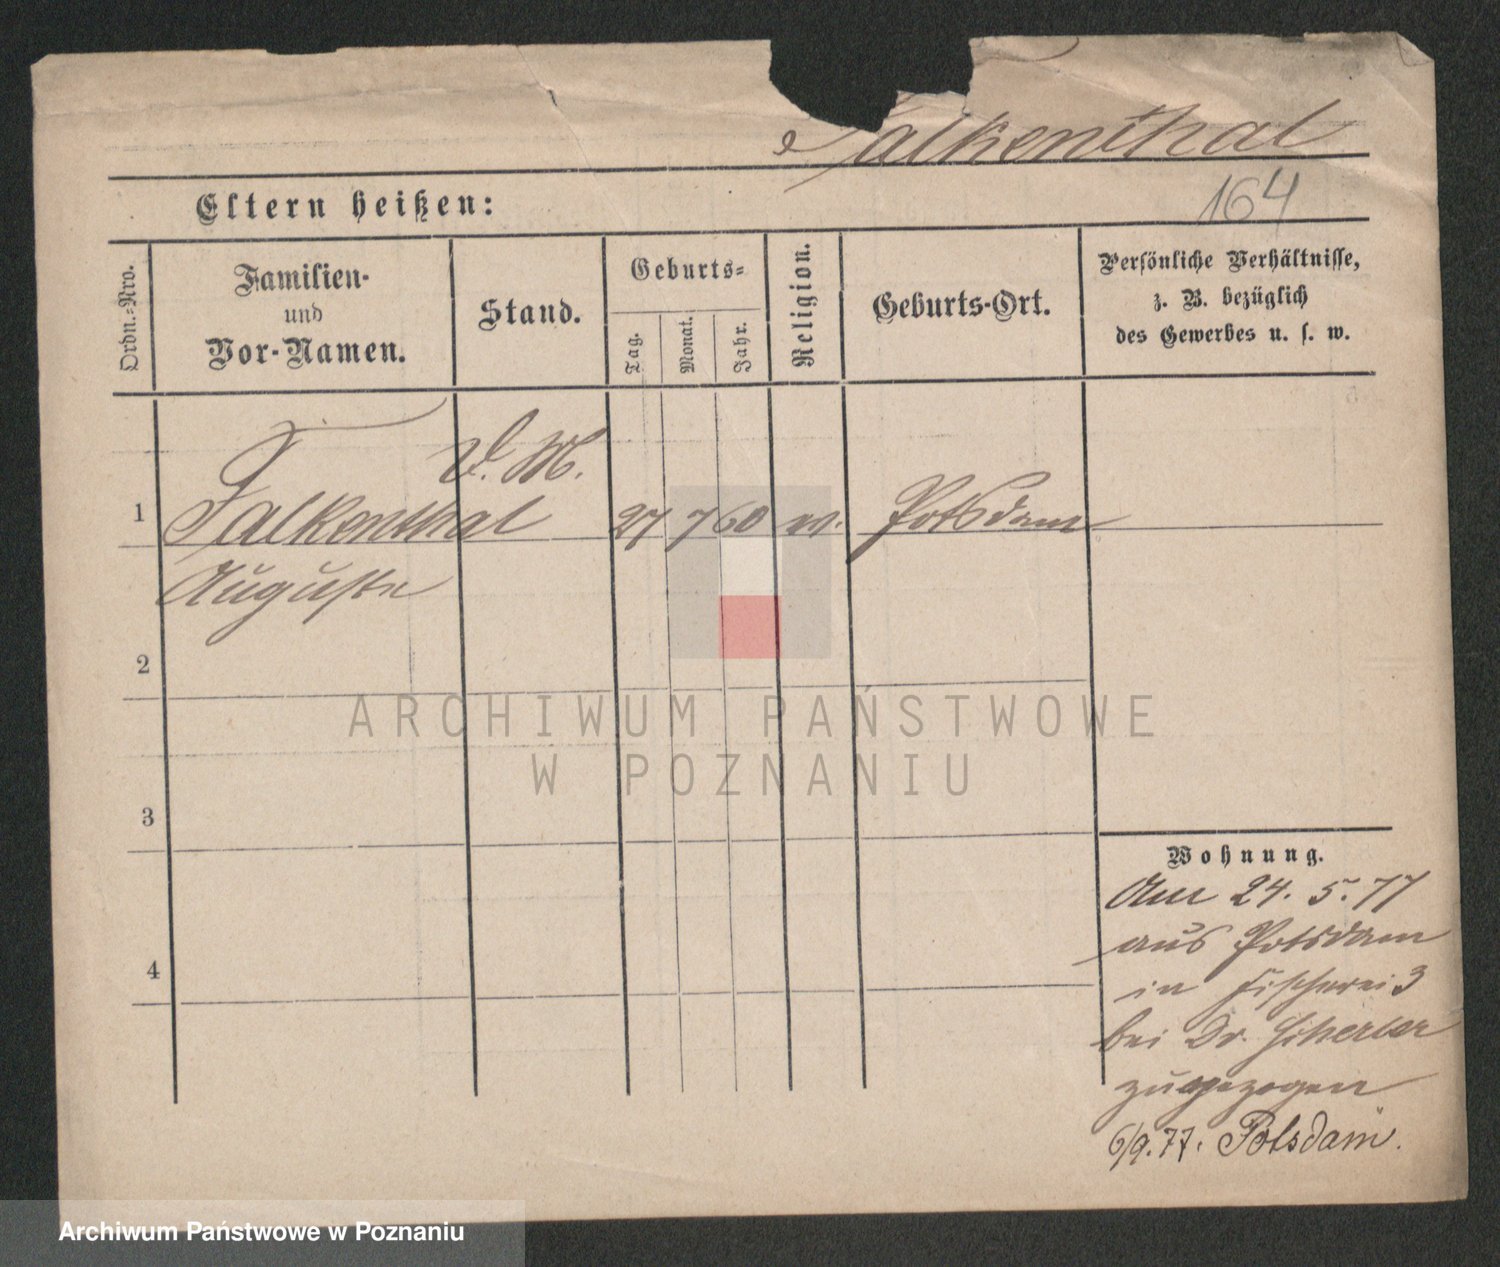 Falkenthal
164
Eltern heißen:
Ordn.-Nro.
Familien-
und
Vor-Namen.
Stand.
Geburts-
Tag.
Monat.
Jahr.
Religion.
Geburts-Ort.
Persönliche Verhältnisse,
z. B. bezüglich
des Gewerbes u. s. w.
D. M.
1 Falkenthal 27 7 60 ev. Potsdam
Auguste
2
3
4
Wohnung.
Am 24. 5. 77
aus Potsdam
in Fischerei 3
bei Dr.
zugezogen
6/9. 77. Potsdam.
ARCHIWUM PAŃSTWOWE
W POZNANIU
Archiwum Państwowe w Poznaniu